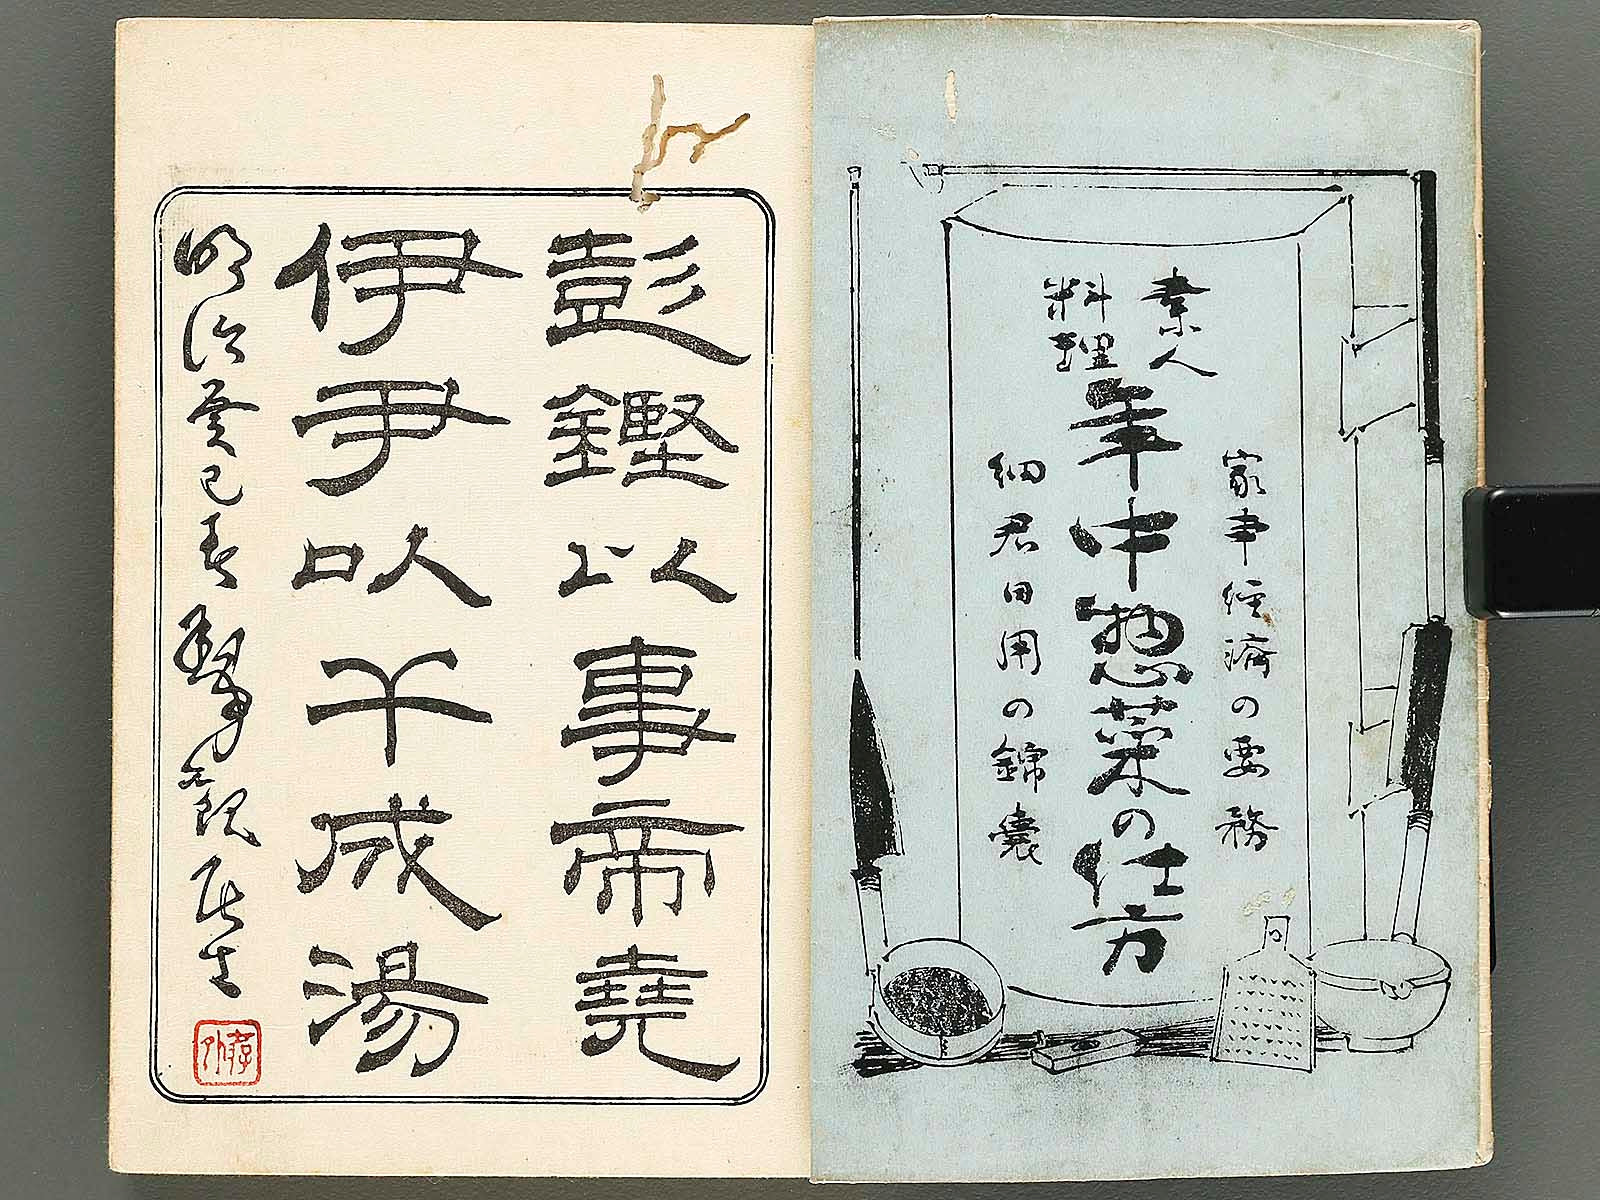 家事経済の要務
素人
料理
年中惣菜の仕方
細君日用の錦嚢
彭鏗以事帝堯
伊尹以干成湯
明治癸巳春
居士